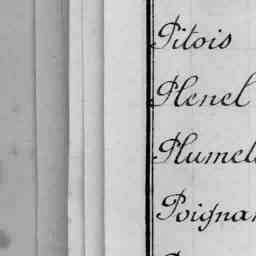 Pitois
Plenel
Plumel
Poigna